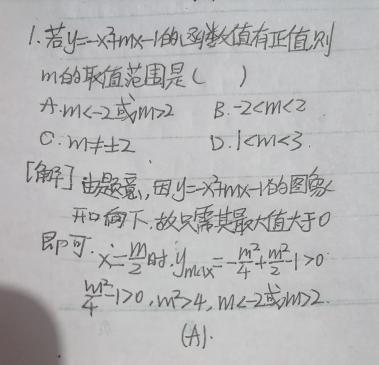 1.若y=-x²+mx-1的函数值有正值,则
m的取值范围是( )
A.m<-2或m>2 B.-2<m<2
C.m≠±2 D.1<m<3.
[解]由题意,因y=-x²+mx-1的图象
开口向下,故只需其最大值大于0
即可.x=m/2时,ymax=-m²/4+m²/2-1>0
m²/4-1>0,m²>4,m<-2或m>2.
(A).